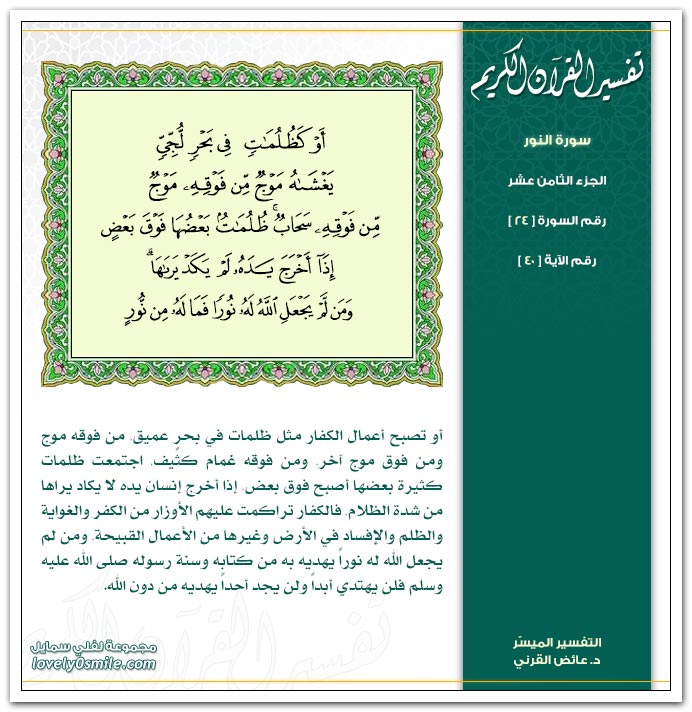 تفسير القرآن الكريم
سورة النور
الجزء الثامن عشر
رقم السورة [ ٢٤ ]
رقم الآية [ ٤٠ ]
أَوْ كَظُلُمَٰتٍ فِى بَحْرٍ لُّجِّىٍّ
يَغْشَىٰهُ مَوْجٌ مِّن فَوْقِهِۦ مَوْجٌ
مِّن فَوْقِهِۦ سَحَابٌ ۚ ظُلُمَٰتٌۢ بَعْضُهَا فَوْقَ بَعْضٍ
إِذَآ أَخْرَجَ يَدَهُۥ لَمْ يَكَدْ يَرَىٰهَا ۗ
وَمَن لَّمْ يَجْعَلِ ٱللَّهُ لَهُۥ نُورًا فَمَا لَهُۥ مِن نُّورٍ
أو تصبح أعمال الكفار مثل ظلمات في بحرٍ عميق، من فوقه موج
ومن فوق موج آخر، ومن فوقه غمام كثيف، اجتمعت ظلمات
كثيرة بعضها أصبح فوق بعض، إذا أخرج إنسان يده لا يكاد يراها
من شدة الظلام، فالكفار تراكمت عليهم الأوزار من الكفر والغواية
والظلم والإفساد في الأرض وغيرها من الأعمال القبيحة، ومن لم
يجعل الله له نوراً يهديه به من كتابه وسنة رسوله صلى الله عليه
وسلم فلن يهتدي أبداً ولن يجد أحداً يهديه من دون الله.
التفسير الميسّر
د. عائض القرني
مجموعة لفلي سمايل
lovely0smile.com